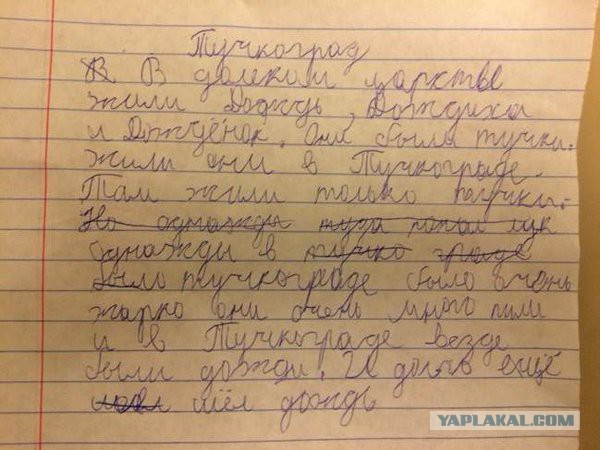 Тучкоград
В В далеком царстве
жили Дождь, Дождиха
и Дождёнок. Они были тучки.
Жили они в Тучкограде.
Там жили только тучки.
Но однажды туда попал
Однажды в тучко граде
было тучкограде было очень
жарко они очень много пили
и в Тучкограде везде
были дожди. И долго ещё
шёл дождь
YAPLAKAL.COM